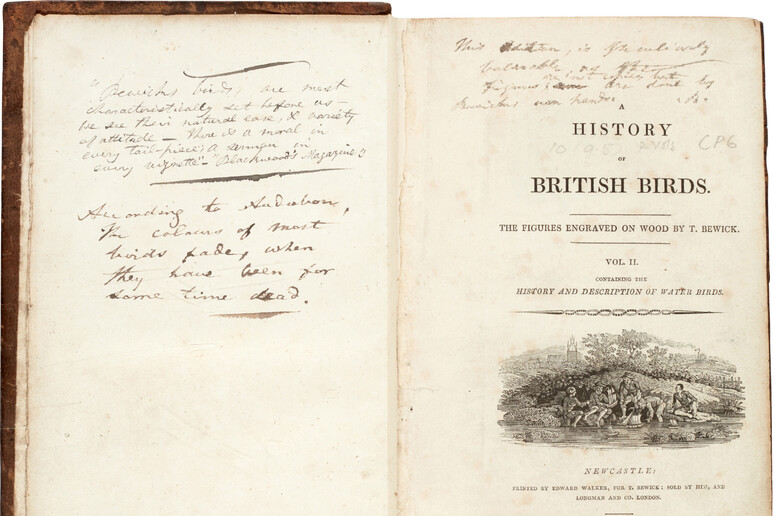 "Bewicks birds are most
characteristically set before us -
we see their natural ease, & variety
of attitude - There is a moral in
every tail-piece; a sermon in
every vignette" - "Blackwood's Magazine"
According to Audubon,
The colours of most
birds fade, when
they have been for
some time dead.
This Edition, is
valuable as
Figures are done by
own hands.
A
HISTORY
OF
BRITISH BIRDS.
THE FIGURES ENGRAVED ON WOOD BY T. BEWICK.
VOL. II.
CONTAINING THE
HISTORY AND DESCRIPTION OF WATER BIRDS.
NEWCASTLE:
PRINTED BY EDWARD WALKER, FOR T. BEWICK: SOLD BY HIM, AND
LONGMAN AND CO. LONDON.